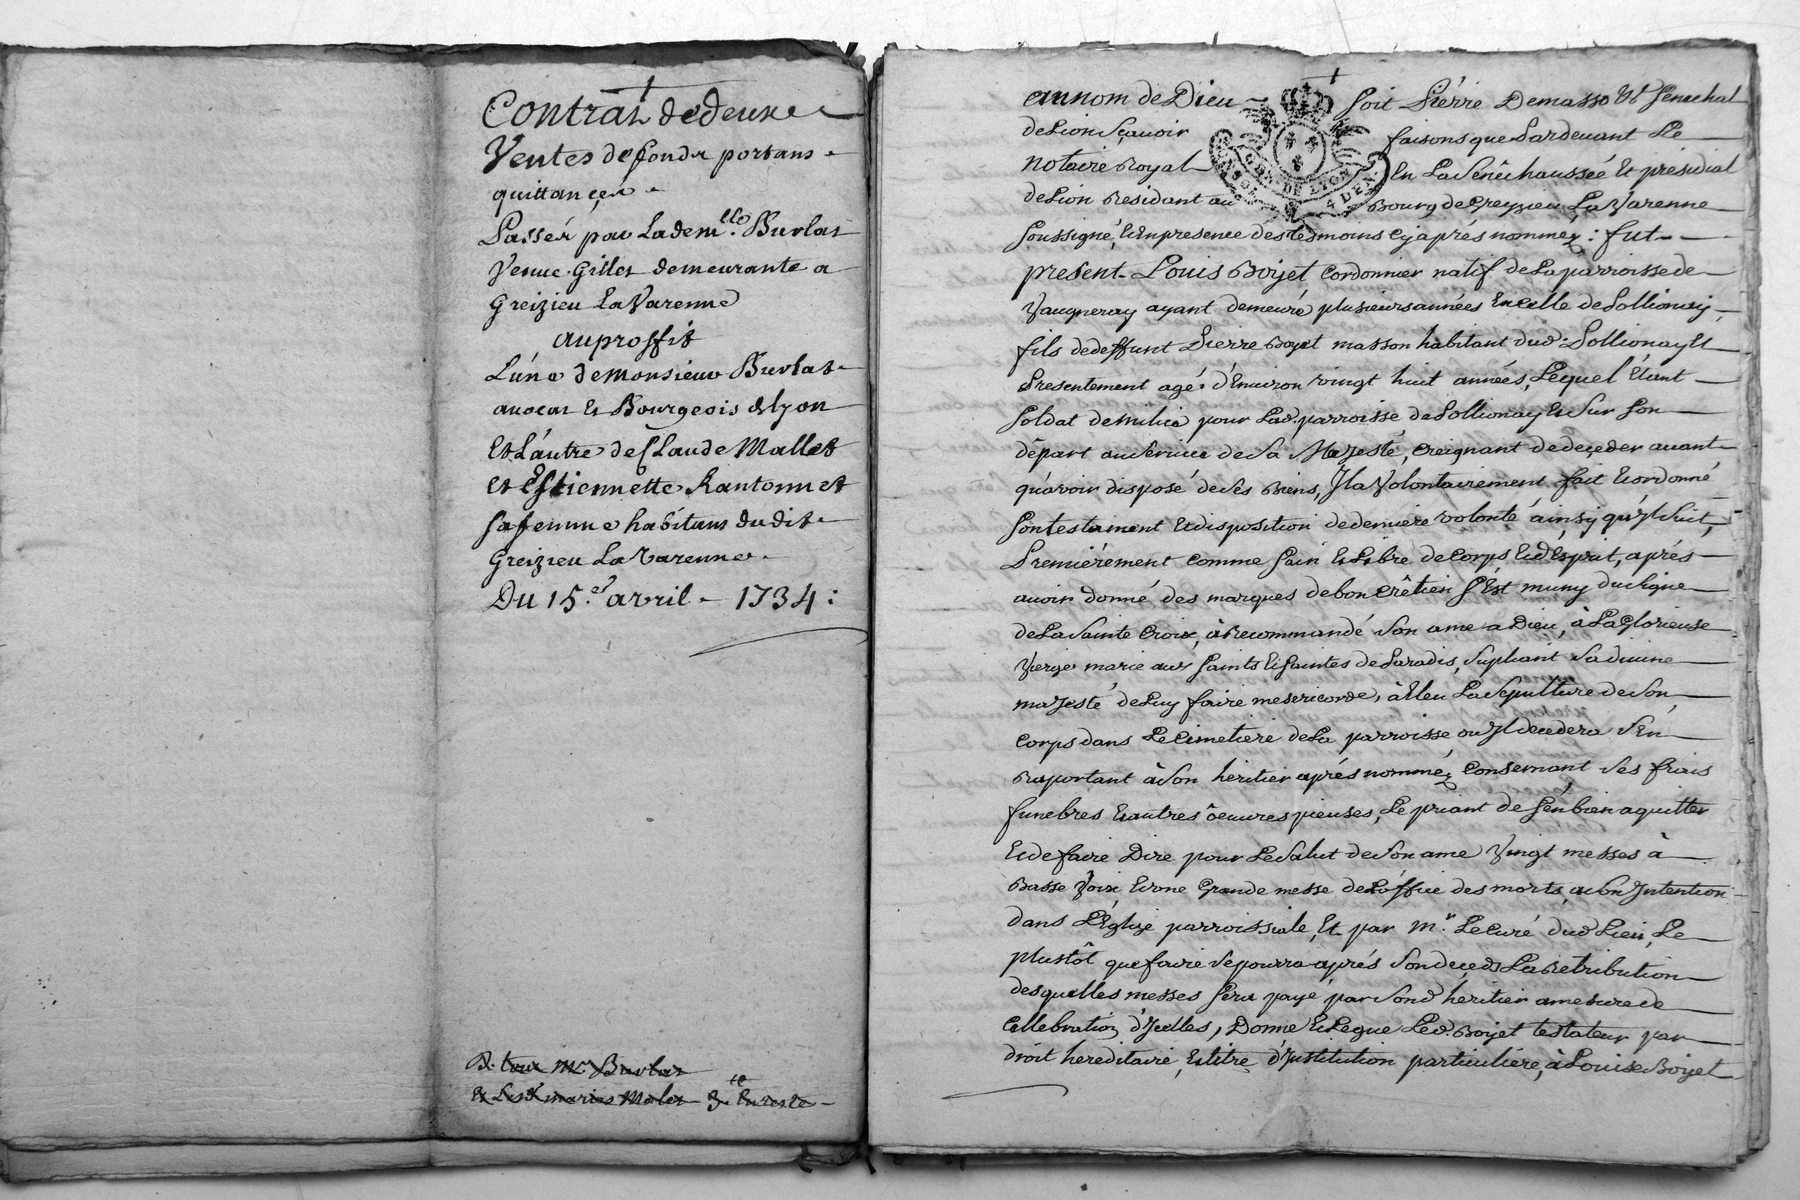 Contrat de deux
Ventes de fonds portans
quittances
Passés par La dem.lle Burlat
Veuve Gillet demeurante a
Greizieu La Varenne
au proffit
L'une de monsieur Burlat
avocat et Bourgeois de lyon
Et L'autre de Claude Mallet
et Estiennette Rantonnet
sa femme habitans dudit
Greizieu La Varenne
Du 15.e avril - 1734 :
Mr Burlat
mariés Malet
au nom de Dieu soit Pierre Demasso Sr Senechal
de Lion Sçavoir faisons que Pardevant Le
notaire Royal En La Sénêchaussée Et présidial
GEN. DE LYON
4 DEN
de Lion Résidant au Bourg de Greyzieu La Varenne
soussigné, Et En presence des tesmoins cy aprés nommez : fut
présent Louis Boyet cordonnier natif de La parroisse de
Vaugneray ayant demeuré plusieurs années En celle de Pollionay,
fils de deffunt Pierre Boyet masson habitant dud. Pollionay Et
Presentement agé d'Environ vingt huit années, Lequel Etant
soldat de milice pour Lad. parroisse de Pollionay Et Sur son
dêpart au Service de Sa Majesté, Creignant de deçeder avant
qu'avoir disposé de Ses Biens, Il a Volontairement fait Et ordonné
son testament Et disposition de derniere volonté ainsy qu'yl Suit,
Premiérement comme sain Et Libre de Corps Et d'Esprit, aprés
avoir donné des marques de bon Crêtien s'Est muny du Signe
de La Sainte Croix, à Recommandé Son ame a Dieu, à La Glorieuse
Vierge marie aux Saints Et Saintes de Paradis, Supliant Sa divine
majesté de Luy faire misericorde, à Eleu La Sepulture de Son
corps dans Le Cimetiere de La parroisse ou Yl decedera S'En
Raportant à Son héritier aprés nommé, Consernant Ses frais
funebres Et autres ôeuvres pieuses, Le priant de s'en bien aquitter
Et de faire Dire pour Le Salut de Son ame Vingt messes à
Basse Voix Et une Grande messe de L'office des morts, a Son Intention
dans L'Eglize parroissiale, Et par Mr. Le Curé dud. Lieu, Le
plustôt que faire Se pourra aprés Son deçeds La Retribution
des quelles messes sera payé par Sond. héritier a mesure de
Cellebration d'Icelles, Donne Et Legue Led. Boyet testateur par
droit hereditaire, Et titre d'Institution particuliére, à Louise Boyet